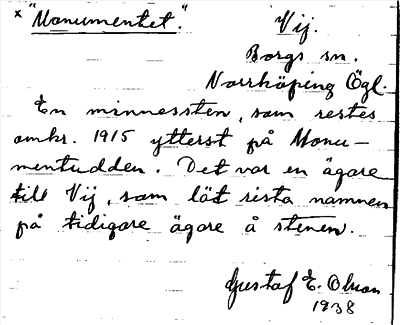 x "Monumentet." Vij.
Borgs sn.
Norrköping Ögl.
En minnessten, som restes
omkr. 1915 ytterst på Monu-
mentudden. Det var en ägare
till Vij, som lät rista namnen
på tidigare ägare å stenen.
Gustaf E. Olson
1938